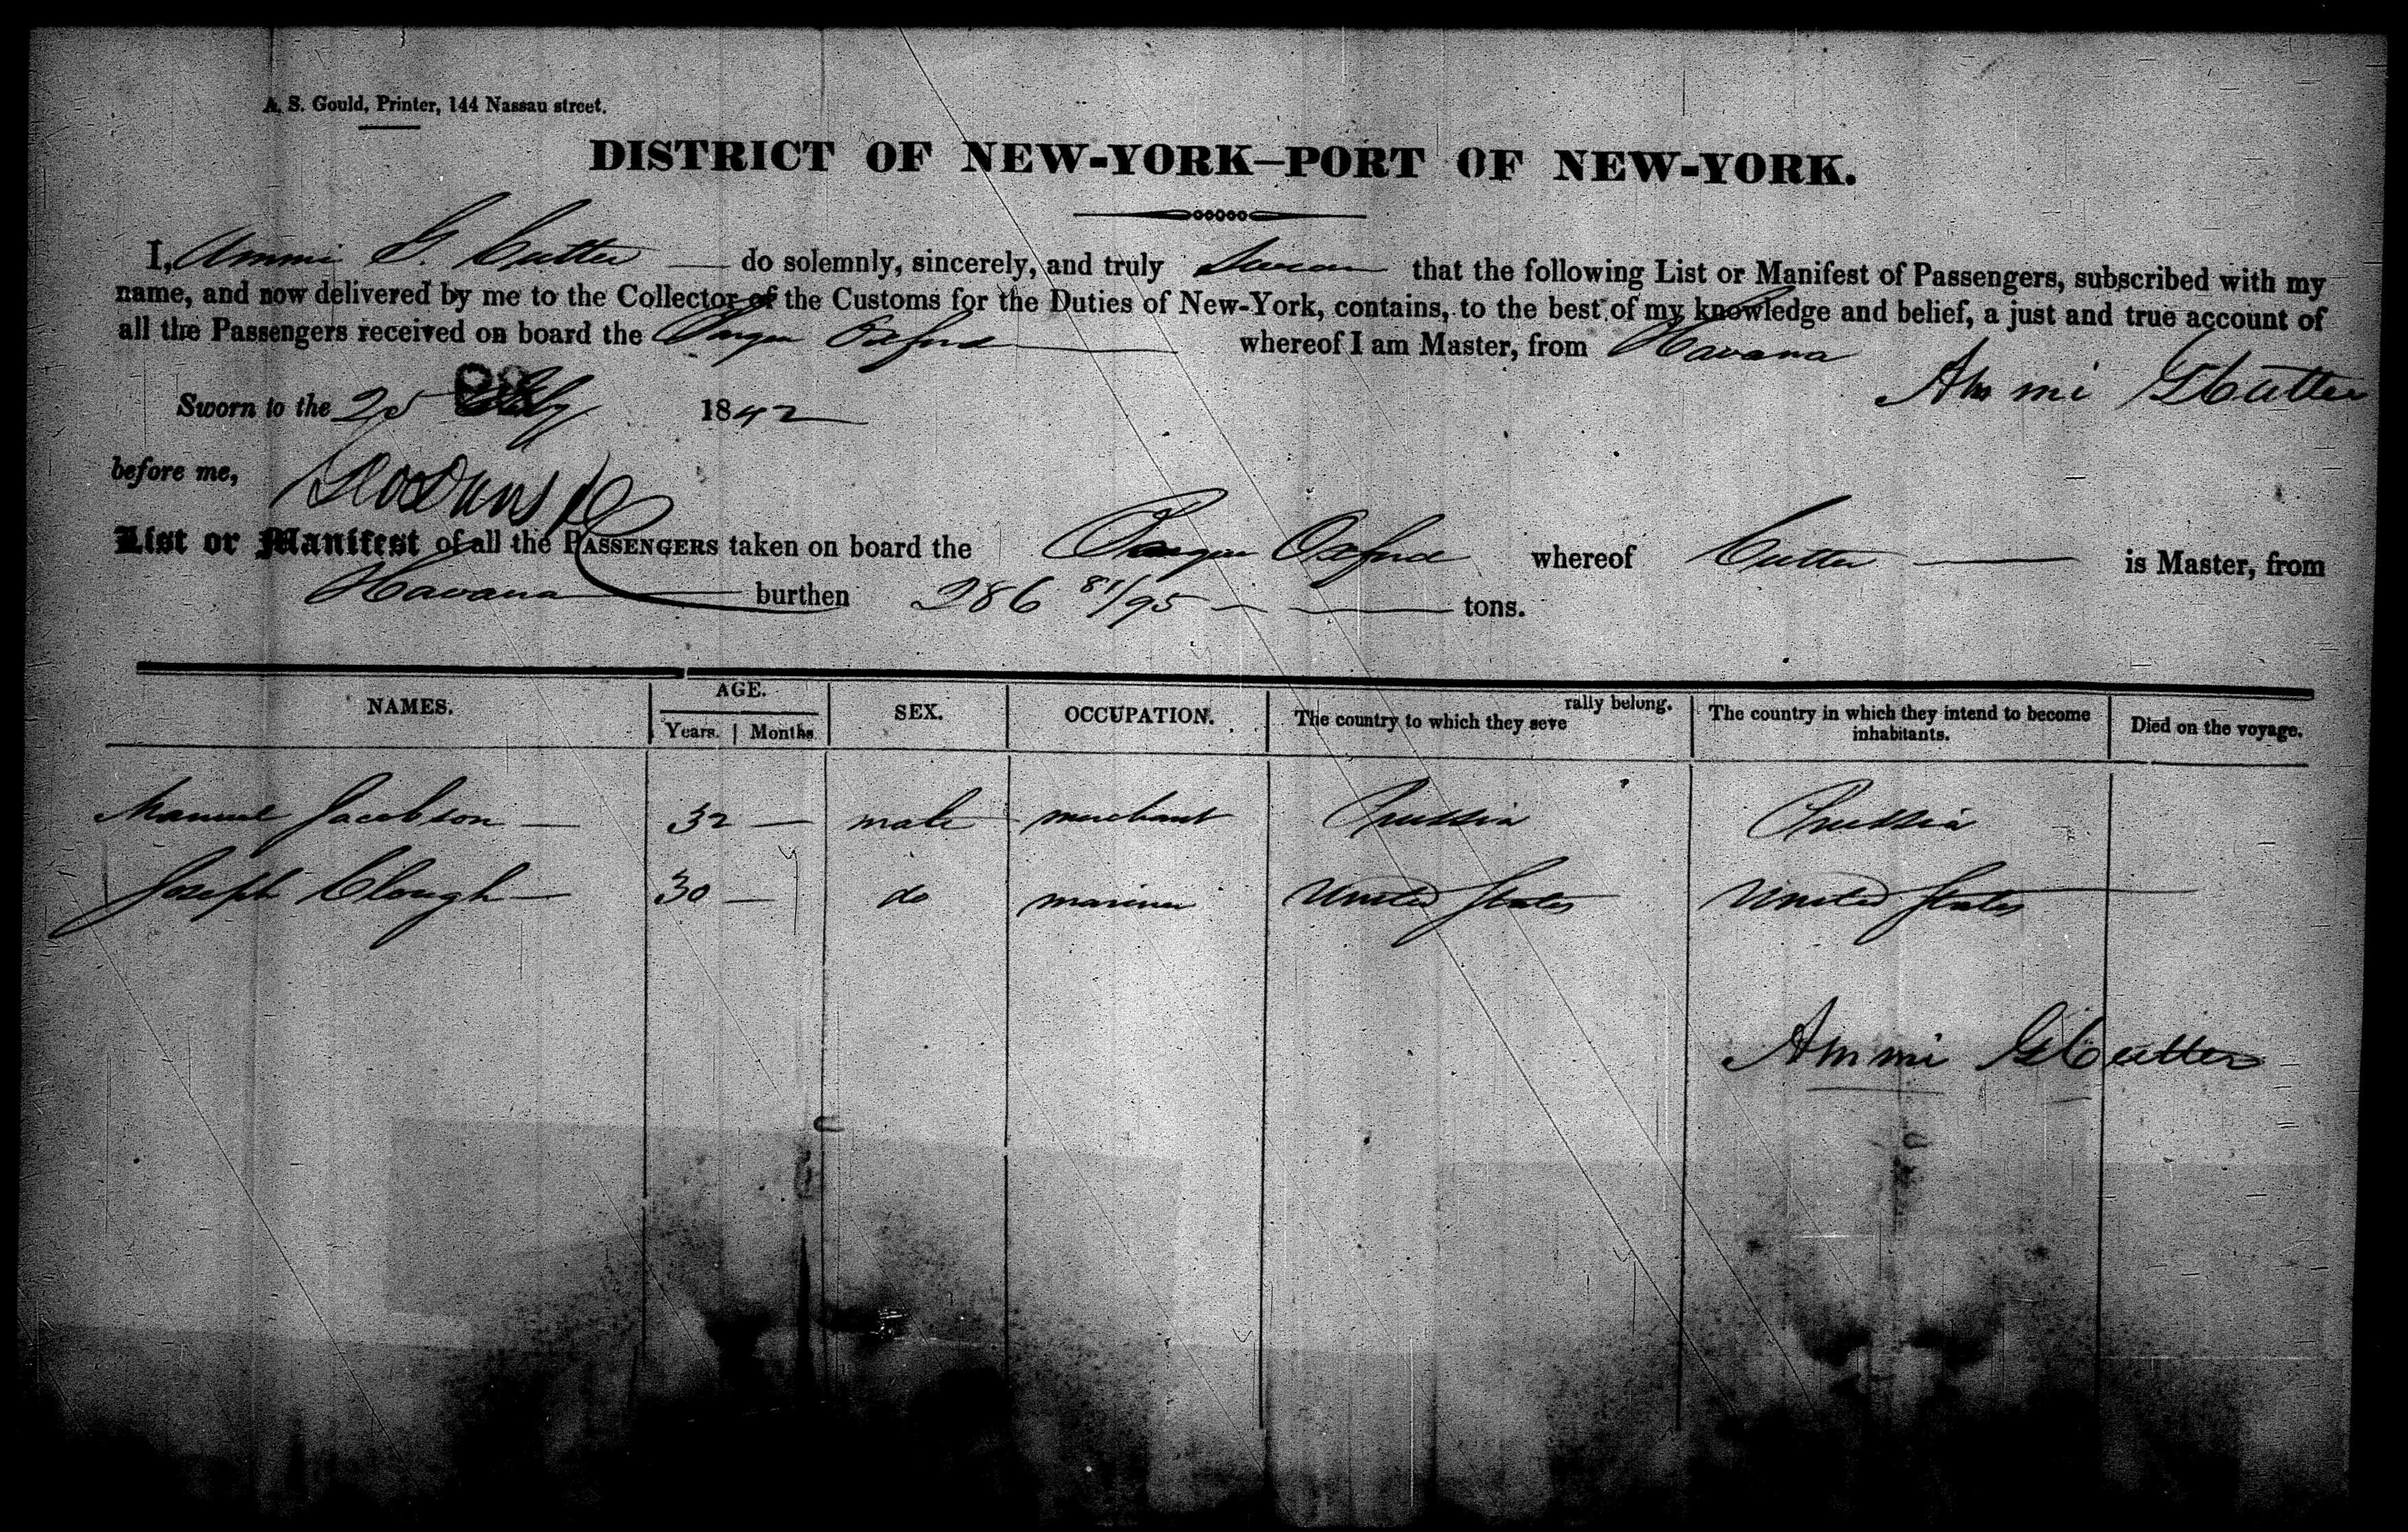 A. S. Gould, Printer, 144 Nassau street.
DISTRICT OF NEW-YORK—PORT OF NEW-YORK.
I, Ammi G. Cutter — do solemnly, sincerely, and truly Swear that the following List or Manifest of Passengers, subscribed with my
name, and now delivered by me to the Collector of the Customs for the Duties of New-York, contains, to the best of my knowledge and belief, a just and true account of
all the Passengers received on board the Barque Oxford — whereof I am Master, from Havana
Ammi G Cutter
Sworn to the 25 1842
before me,
List or Manifest of all the PASSENGERS taken on board the Barque Oxford whereof Cutter — is Master, from
Havana — burthen 286 81/95 — tons.
NAMES. AGE. SEX. OCCUPATION. The country to which they seve rally belong. The country in which they intend to become inhabitants. Died on the voyage.
Years. Months
Manuel Jacobson — 32 — male merchant Prussia Prussia
Joseph Clough — 30 — do mariner United States United States
Ammi G Cutter